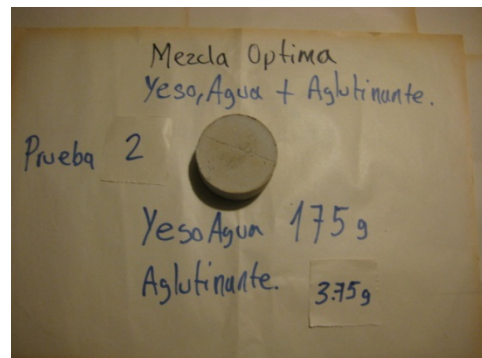 Mezcla Optima
Yeso, Agua + Aglutinante.
Prueba 2
Yeso Agua 175 g
Aglutinante. 3.75 g